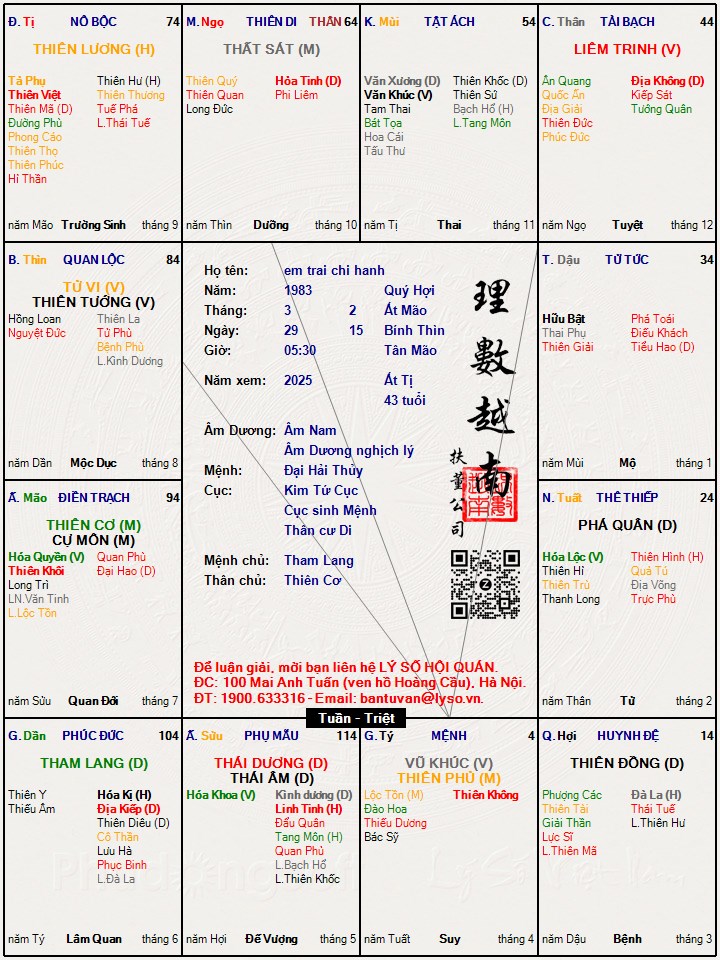 Đ. Tị NÔ BỘC 74
THIÊN LƯƠNG (H)
Tả Phụ Thiên Hư (H)
Thiên Việt Thiên Thương
Thiên Mã (D) Tuế Phá
Đường Phù L.Thái Tuế
Phong Cáo
Thiên Thọ
Thiên Phúc
Hỉ Thần
năm Mão Trường Sinh tháng 9
M. Ngọ THIÊN DI THÂN 64
THẤT SÁT (M)
Thiên Quý Hỏa Tinh (D)
Thiên Quan Phi Liêm
Long Đức
năm Thìn Dưỡng tháng 10
K. Mùi TẬT ÁCH 54
Văn Xương (D) Thiên Khốc (D)
Văn Khúc (V) Thiên Sứ
Tam Thai Bạch Hổ (H)
Bát Tọa L.Tang Môn
Hoa Cái
Tấu Thư
năm Tị Thai tháng 11
C. Thân TÀI BẠCH 44
LIÊM TRINH (V)
Ân Quang Địa Không (D)
Quốc Ấn Kiếp Sát
Địa Giải Tướng Quân
Thiên Đức
Phúc Đức
năm Ngọ Tuyệt tháng 12
B. Thìn QUAN LỘC 84
TỬ VI (V)
THIÊN TƯỚNG (V)
Hồng Loan Thiên La
Nguyệt Đức Tử Phù
Bệnh Phù
L.Kình Dương
năm Dần Mộc Dục tháng 8
Họ tên: em trai chi hanh
Năm: 1983 Quý Hợi
Tháng: 3 2 Ất Mão
Ngày: 29 15 Bính Thìn
Giờ: 05:30 Tân Mão
Năm xem: 2025 Ất Tị
43 tuổi
Âm Dương: Âm Nam
Âm Dương nghịch lý
Mệnh: Đại Hải Thủy
Cục: Kim Tứ Cục
Cục sinh Mệnh
Thân cư Di
Mệnh chủ: Tham Lang
Thân chủ: Thiên Cơ
理
數
越
南
扶
董
公
司
Để luận giải, mời bạn liên hệ LÝ SỐ HỘI QUÁN.
ĐC: 100 Mai Anh Tuấn (ven hồ Hoàng Cầu), Hà Nội.
ĐT: 1900.633316 - Email: bantuvan@lyso.vn.
T. Dậu TỬ TỨC 34
Hữu Bật Phá Toái
Thai Phụ Điếu Khách
Thiên Giải Tiểu Hao (D)
năm Mùi Mộ tháng 1
Ấ. Mão ĐIỀN TRẠCH 94
THIÊN CƠ (M)
CỰ MÔN (M)
Hóa Quyền (V) Quan Phù
Thiên Khôi Đại Hao (D)
Long Trì
LN.Văn Tinh
L.Lộc Tồn
năm Sửu Quan Đới tháng 7
N. Tuất THÊ THIẾP 24
PHÁ QUÂN (D)
Hóa Lộc (V) Thiên Hình (H)
Thiên Hỉ Quả Tú
Thiên Trù Địa Võng
Thanh Long Trực Phù
năm Thân Tử tháng 2
Tuần - Triệt
G. Dần PHÚC ĐỨC 104
THAM LANG (D)
Thiên Y Hóa Kị (H)
Thiếu Âm Địa Kiếp (D)
Thiên Diêu (D)
Cô Thần
Lưu Hà
Phục Binh
L.Đà La
năm Tý Lâm Quan tháng 6
Ấ. Sửu PHỤ MẪU 114
THÁI DƯƠNG (D)
THÁI ÂM (D)
Hóa Khoa (V) Kình dương (D)
Linh Tinh (H)
Đẩu Quân
Tang Môn (H)
Quan Phủ
L.Bạch Hổ
L.Thiên Khốc
năm Hợi Đế Vượng tháng 5
G. Tý MỆNH 4
VŨ KHÚC (V)
THIÊN PHỦ (M)
Lộc Tồn (M) Thiên Không
Đào Hoa
Thiếu Dương
Bác Sỹ
năm Tuất Suy tháng 4
Q. Hợi HUYNH ĐỆ 14
THIÊN ĐỒNG (D)
Phượng Các Đà La (H)
Thiên Tài Thái Tuế
Giải Thần L.Thiên Hư
Lực Sĩ
L.Thiên Mã
năm Dậu Bệnh tháng 3